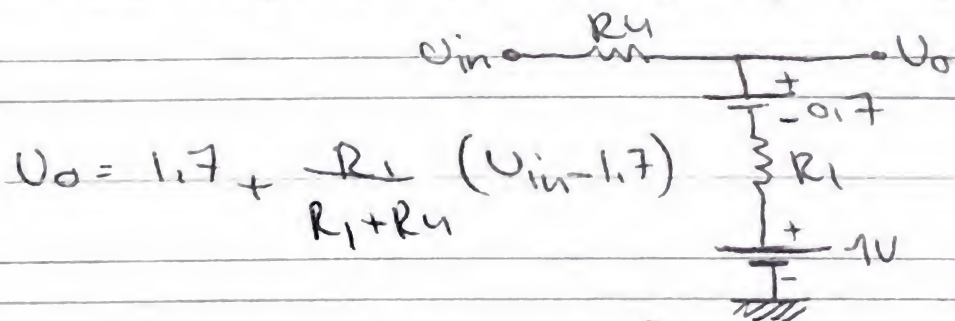 R4
Uin Uo
+
- 0,7
Uo = 1,7 + R1 / R1+R4 (Uin-1,7)
R1
+
1V
-